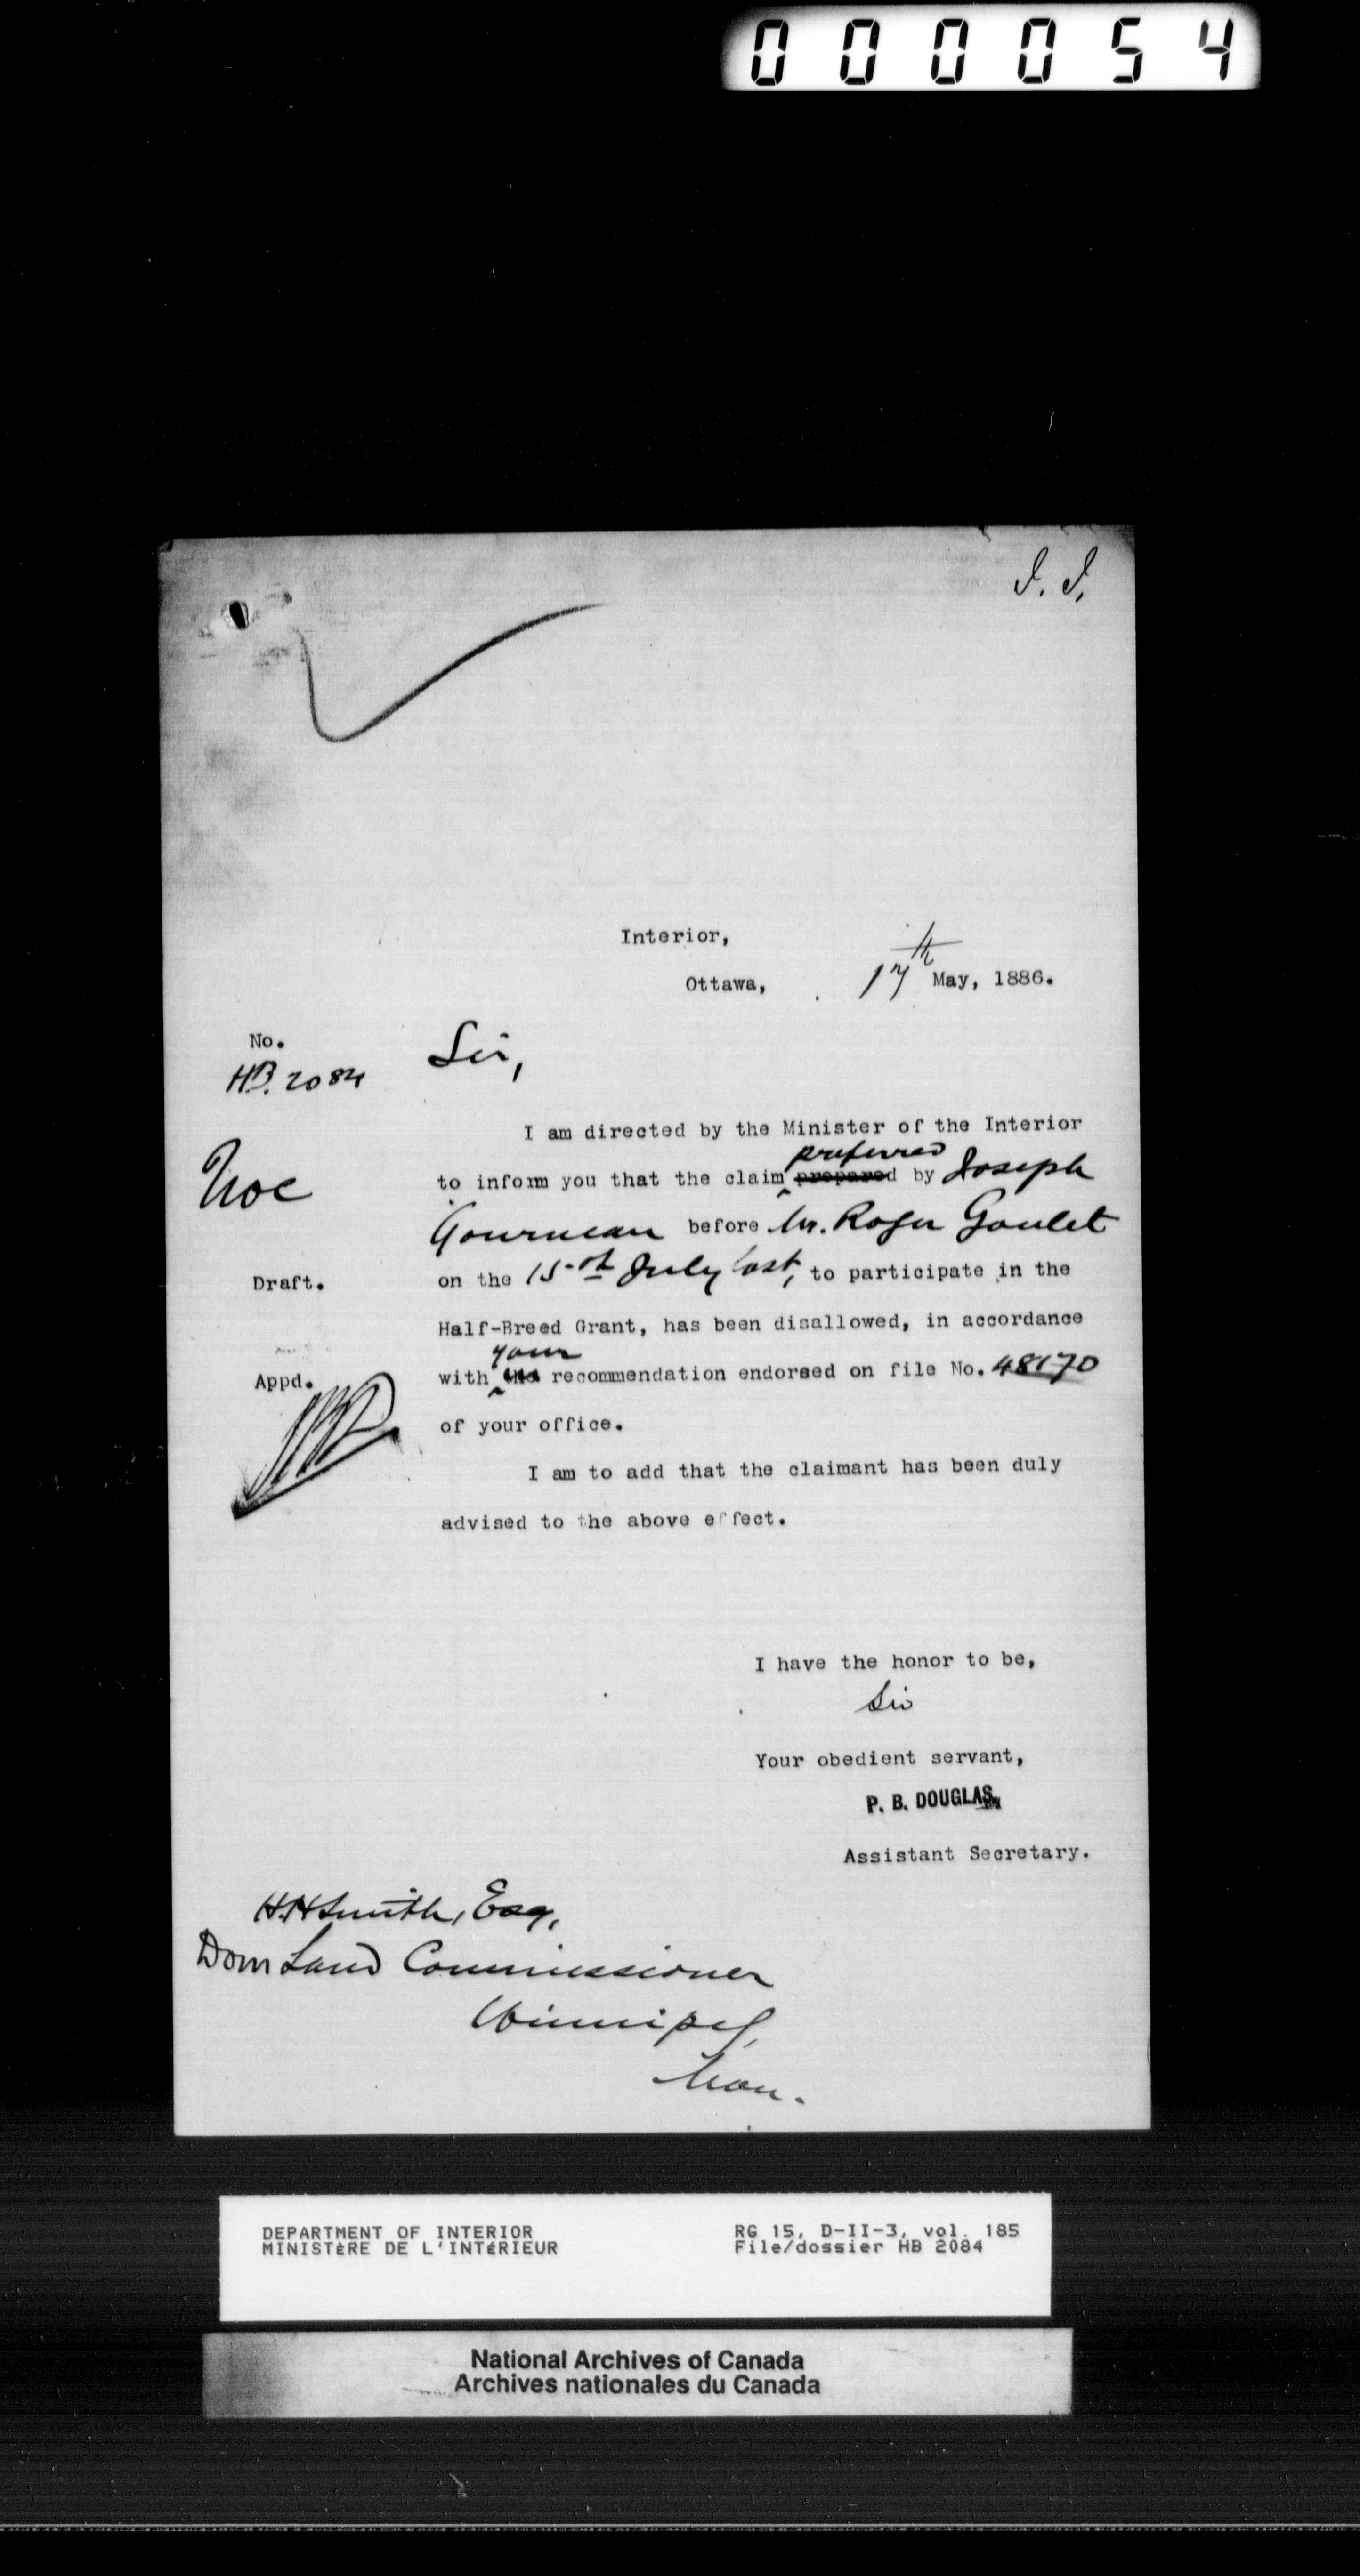 000054
I. I.
Interior,
Ottawa, 17th May, 1886.
No.
HB. 2084
Sir,
I am directed by the Minister of the Interior
preferred
to inform you that the claim prepared by Joseph
Gourneau before Mr. Roger Goulet
Draft.
on the 15th July last, to participate in the
Half-Breed Grant, has been disallowed, in accordance
your
Appd.
with the recommendation endorsed on file No. 48170
of your office.
I am to add that the claimant has been duly
advised to the above effect.
I have the honor to be,
Sir
Your obedient servant,
P. B. DOUGLAS,
Assistant Secretary.
H.H Smith, Esq,
Dom Land Commissioner
Winnipeg,
Man.
DEPARTMENT OF INTERIOR
MINISTÈRE DE L'INTÉRIEUR
RG 15, D-II-3, vol. 185
File/dossier HB 2084
National Archives of Canada
Archives nationales du Canada